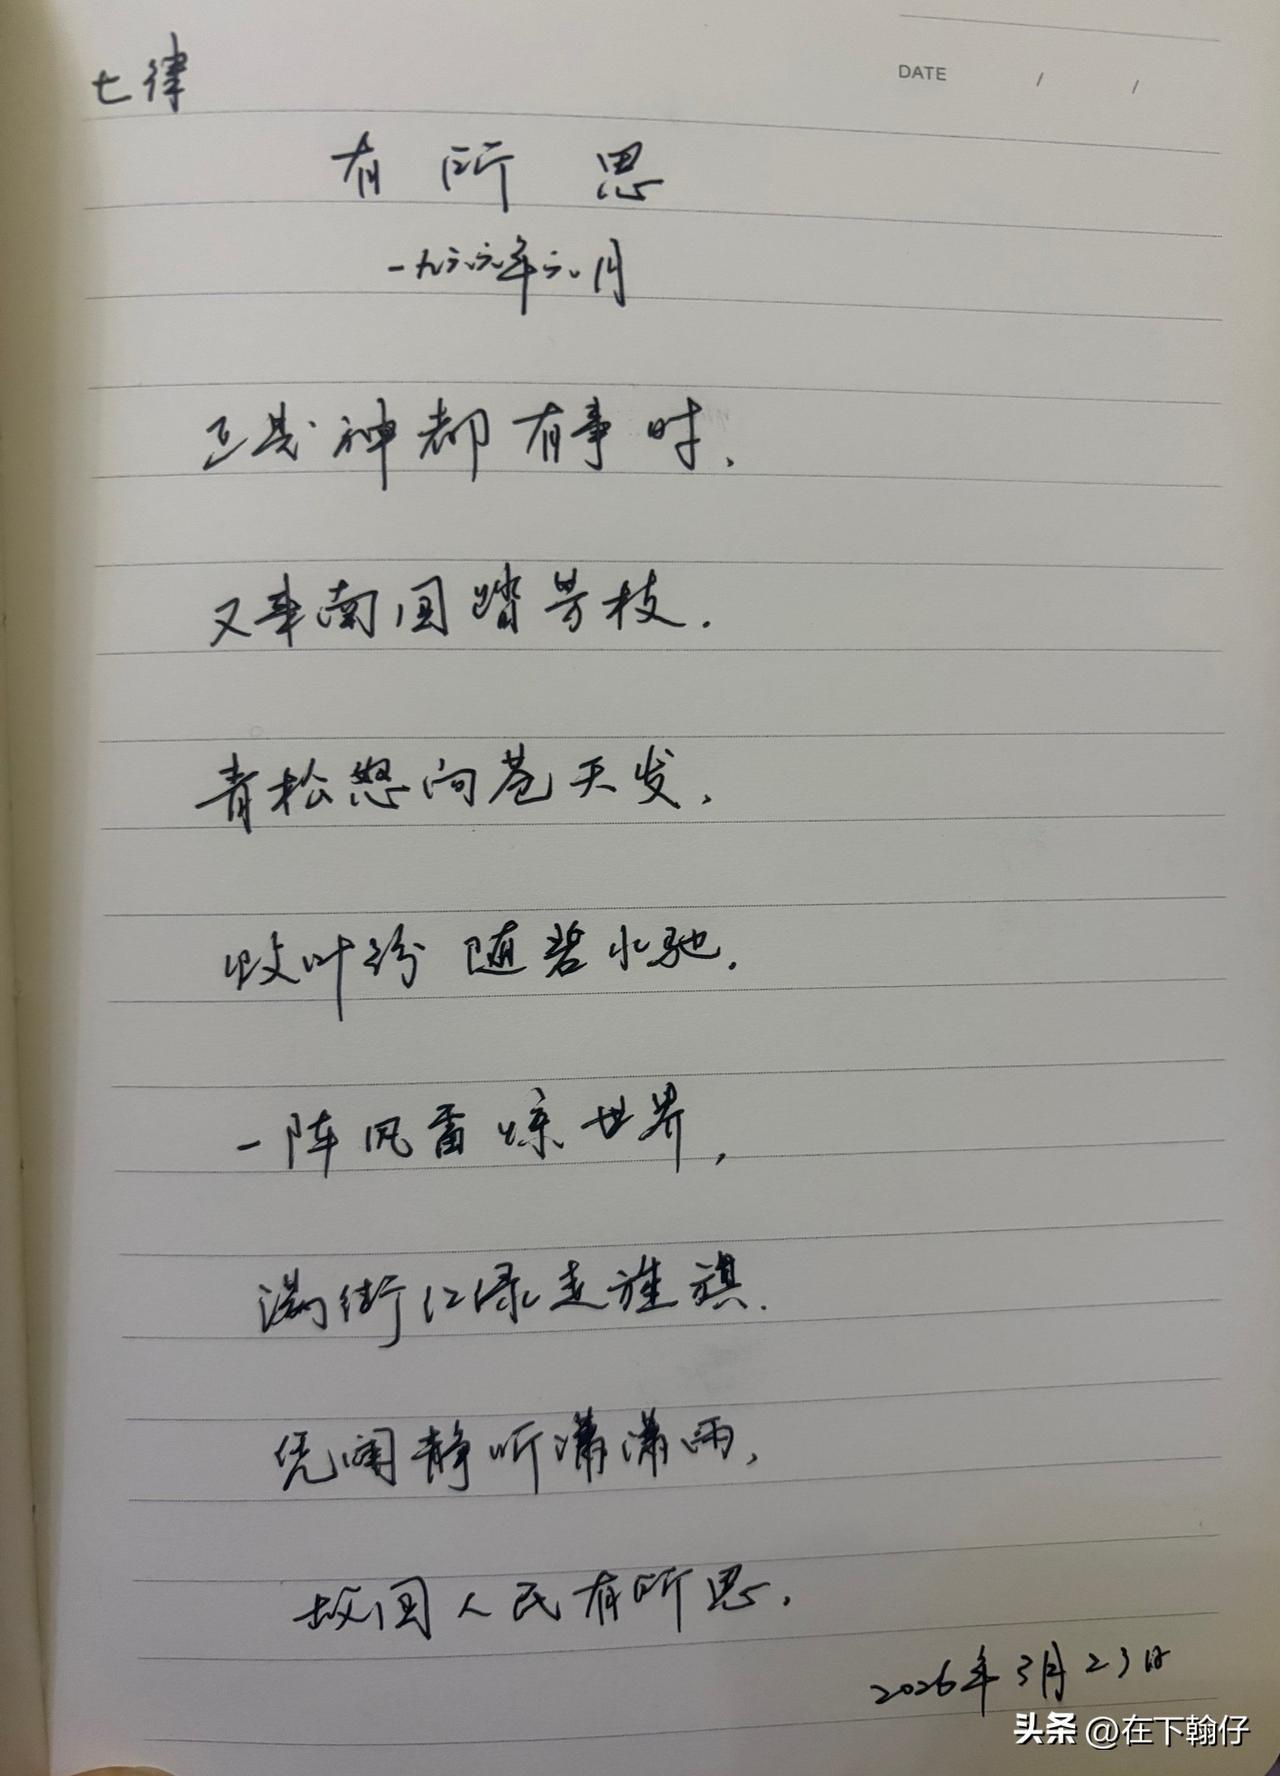 七律
DATE / /
有所思
一九六六年六月
正是神都有事时,
又来南国踏芳枝.
青松怒向苍天发,
败叶纷随碧水驰.
一阵风雷惊世界,
满街红绿走旌旗.
凭阑静听潇潇雨,
故国人民有所思.
2026年3月23日
头条 @在下翰仔